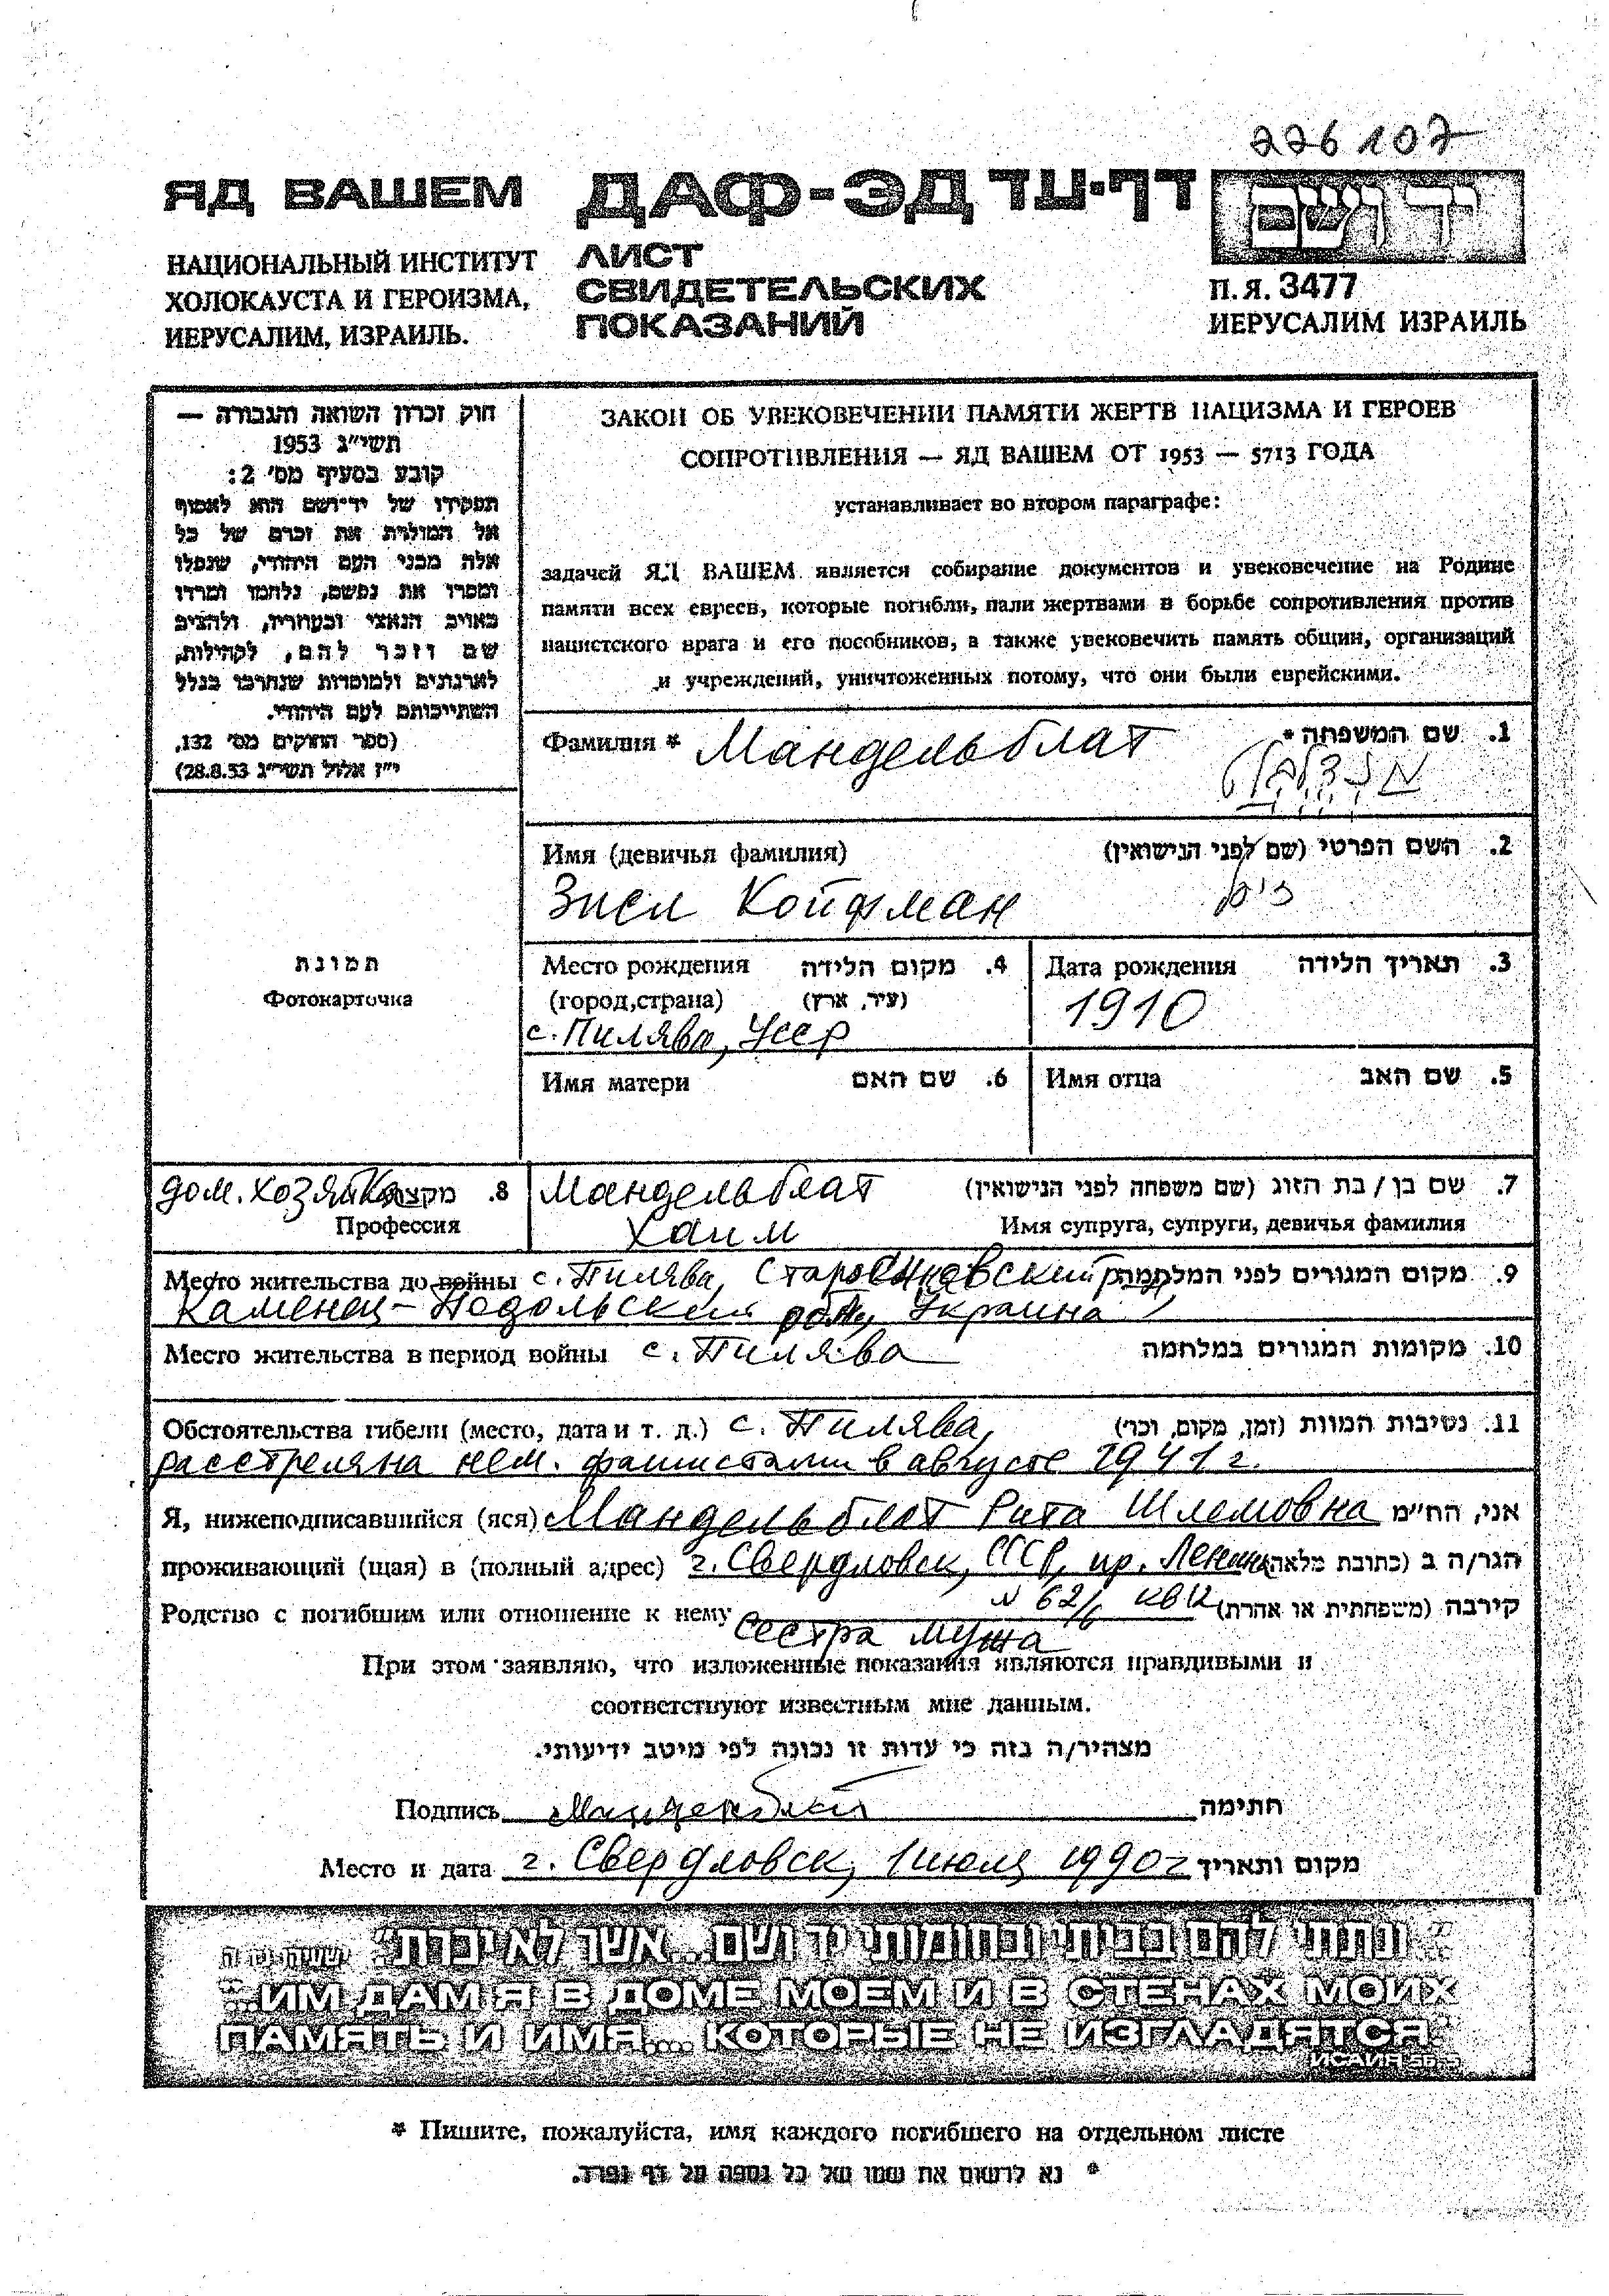 226107
ЯД ВАШЕМ ДАФ-ЭД דף-עד יד ושם
НАЦИОНАЛЬНЫЙ ИНСТИТУТ
ХОЛОКАУСТА И ГЕРОИЗМА,
ИЕРУСАЛИМ, ИЗРАИЛЬ.
ЛИСТ
СВИДЕТЕЛЬСКИХ
ПОКАЗАНИЙ
П.Я. 3477
ИЕРУСАЛИМ ИЗРАИЛЬ
חוק זכרון השואה והגבורה —
תשי"ג 1953
קובע בסעיף מס' 2:
תפקידו של יד-ושם הוא לאסוף
אל המולדת את זכרם של כל
אלה מבני העם היהודי, שנפלו
ומסרו את נפשם, נלחמו ומרדו
באויב הנאצי ובעוזריו, ולהציב
שם וזכר להם, לקהילות,
לארגונים ולמוסדות שנחרבו בגלל
השתייכותם לעם היהודי.
(ספר החוקים מס' 132,
י"ז אלול תשי"ג 28.8.53)
ЗАКОН ОБ УВЕКОВЕЧЕНИИ ПАМЯТИ ЖЕРТВ НАЦИЗМА И ГЕРОЕВ
СОПРОТИВЛЕНИЯ — ЯД ВАШЕМ ОТ 1953 — 5713 ГОДА
устанавливает во втором параграфе:
задачей ЯД ВАШЕМ является собирание документов и увековечение на Родине
памяти всех евреев, которые погибли, пали жертвами в борьбе сопротивления против
нацистского врага и его пособников, а также увековечить память общин, организаций
и учреждений, уничтоженных потому, что они были еврейскими.
Фамилия * Мандельблат 1. שם המשפחה *
מנדלבלט
Имя (девичья фамилия) 2. השם הפרטי (שם לפני הנישואין)
Зисл Койфман זיסל
תמונת
Фотокарточка
Место рождения 4. מקום הלידה
(город,страна) (עיר, ארץ)
с. Пилява, Усср
Дата рождения 3. תאריך הלידה
1910
Имя матери 6. שם האם
Имя отца 5. שם האב
дом. хозяйка 8. מקצוע
Профессия
Мандельблат 7. שם בן / בת הזוג (שם משפחה לפני הנישואין)
Хаим Имя супруга, супруги, девичья фамилия
Место жительства до войны с. Пилява, Старосинявский р-н, 9. מקום המגורים לפני המלחמה
Каменец-Подольская обл., Украина
Место жительства в период войны с. Пилява 10. מקומות המגורים במלחמה
Обстоятельства гибели (место, дата и т. д.) с. Пилява, 11. נסיבות המוות (זמן, מקום, וכר')
расстреляна нем. фашистами в августе 1941 г.
Я, нижеподписавшийся (яся) Мандельблат Рита Шлемовна אני, הח"מ
проживающий (щая) в (полный адрес) г. Свердловск, СССР, пр. Ленина הגר/ה ב (כתובת מלאה)
N 62/6
Родство с погибшим или отношение к нему сестра мужа קירבה (משפחתית או אחרת)
При этом заявляю, что изложенные показания являются правдивыми и
соответствуют известным мне данным.
מצהיר/ה בזה כי עדות זו נכונה לפי מיטב ידיעותי.
Подпись Мандельблат חתימה
Место и дата г. Свердловск, 1 июля 1990 г מקום ותאריך
"ונתתי להם בביתי ובחומותי יד ושם...אשר לא יכרת" ישעיהו נו ה
"...ИМ ДАМ Я В ДОМЕ МОЕМ И В СТЕНАХ МОИХ
ПАМЯТЬ И ИМЯ.... КОТОРЫЕ НЕ ИЗГЛАДЯТСЯ."
ИСАИЯ 56-5
* Пишите, пожалуйста, имя каждого погибшего на отдельном листе
* נא לרשום את שמו של כל נספה על דף נפרד.